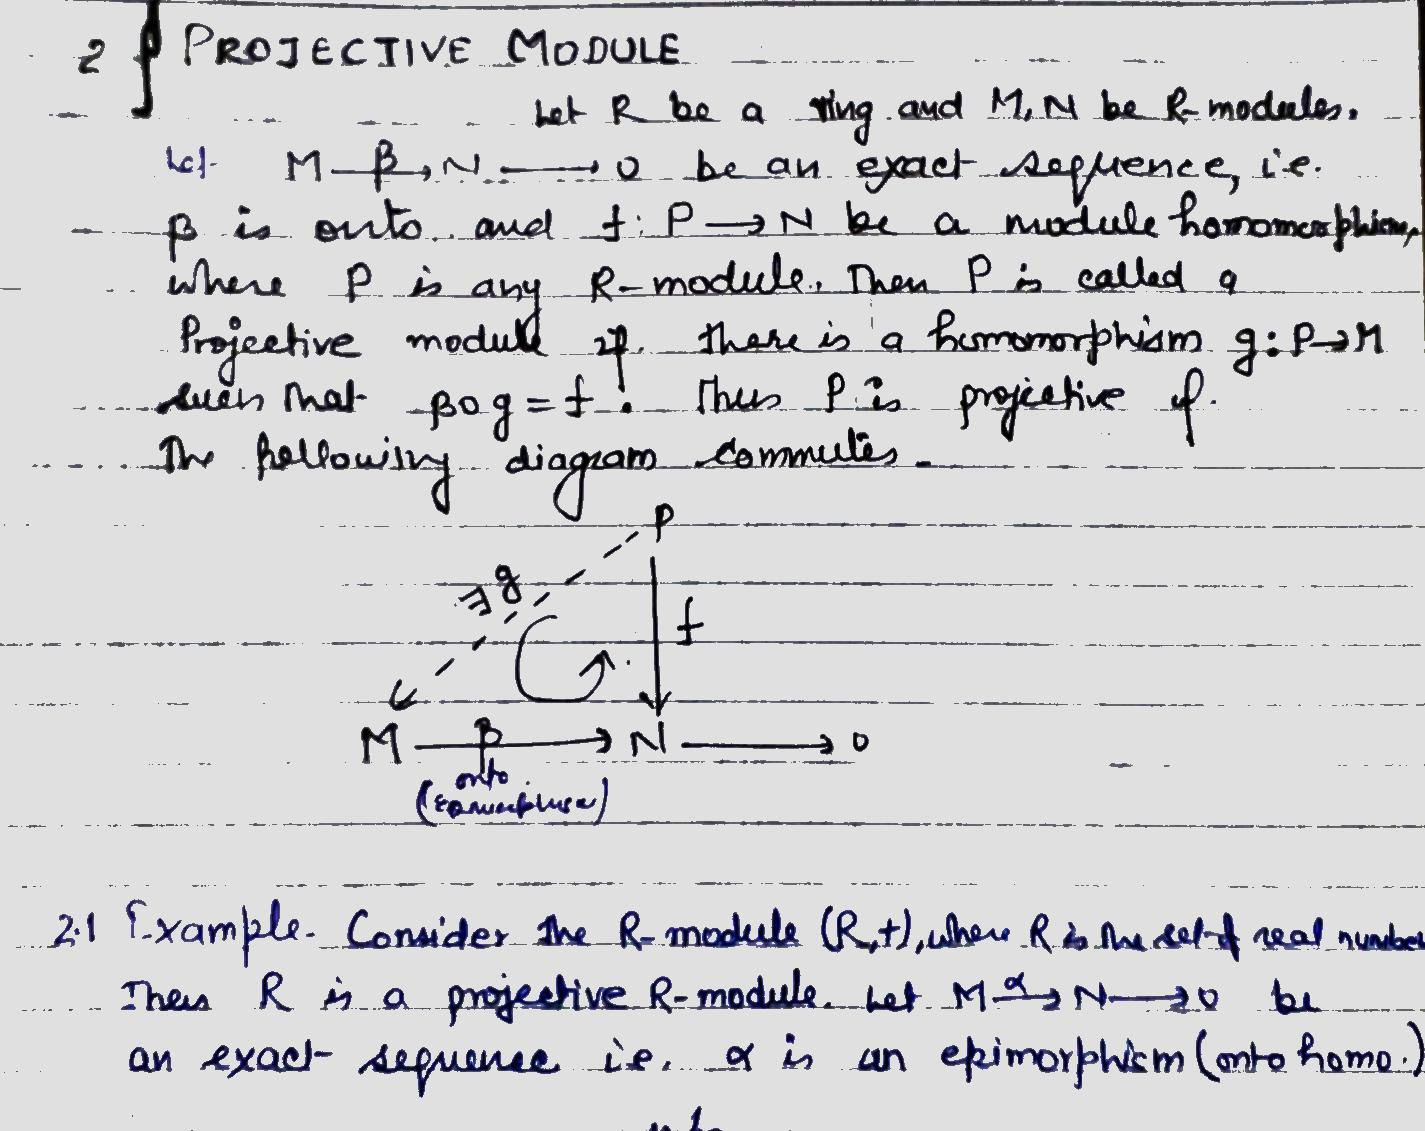 2 PROJECTIVE MODULE
Let R be a ring and M, N be R-modules.
Let M β→ N → 0 be an exact sequence, i.e.
β is onto and f: P → N be a module homomorphism,
where P is any R-module. Then P is called a
Projective module if there is a homomorphism g: P→M
such that β∘g = f. Thus P is projective if
the following diagram commutes.
P
∃ g
f
M β N → 0
onto
2.1 Example. Consider the R-module (R,+), where R is the set of real number
Then R is a projective R-module. Let M α→ N → 0 be
an exact sequence i.e. α is an epimorphism (onto homo.)